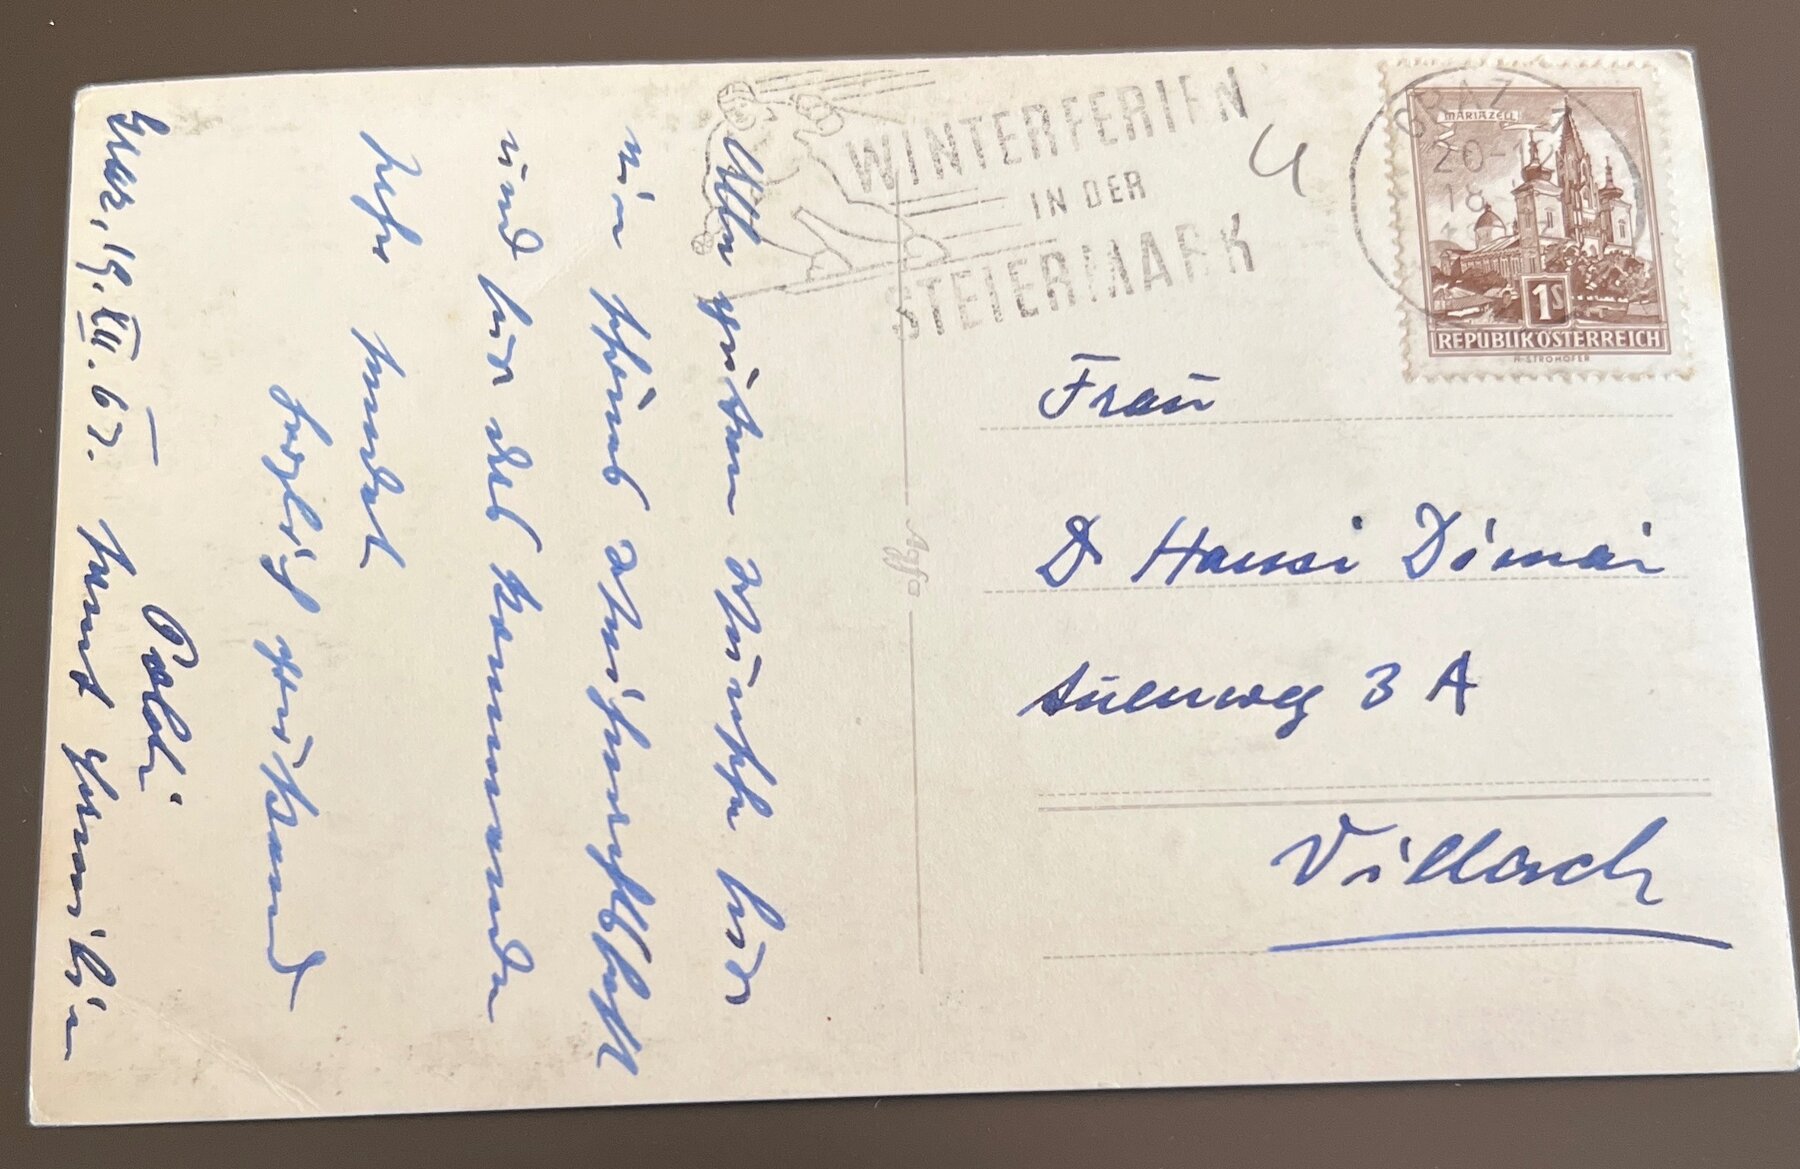 WINTERFERIEN
IN DER
STEIERMARK
GRAZ
20-12
18
MARIAZELL
1S
REPUBLIK ÖSTERREICH
H·STROHOFER
Alle guten Wünsche für
ein schönes Weihnachtsfest
und für das kommende
Jahr sendet
herzlich grüßend
Poldi
samt Familie
Graz, 19. XII. 67.
Agfa
Frau
Dr Hansi Dimai
Auenweg 3 A
Villach